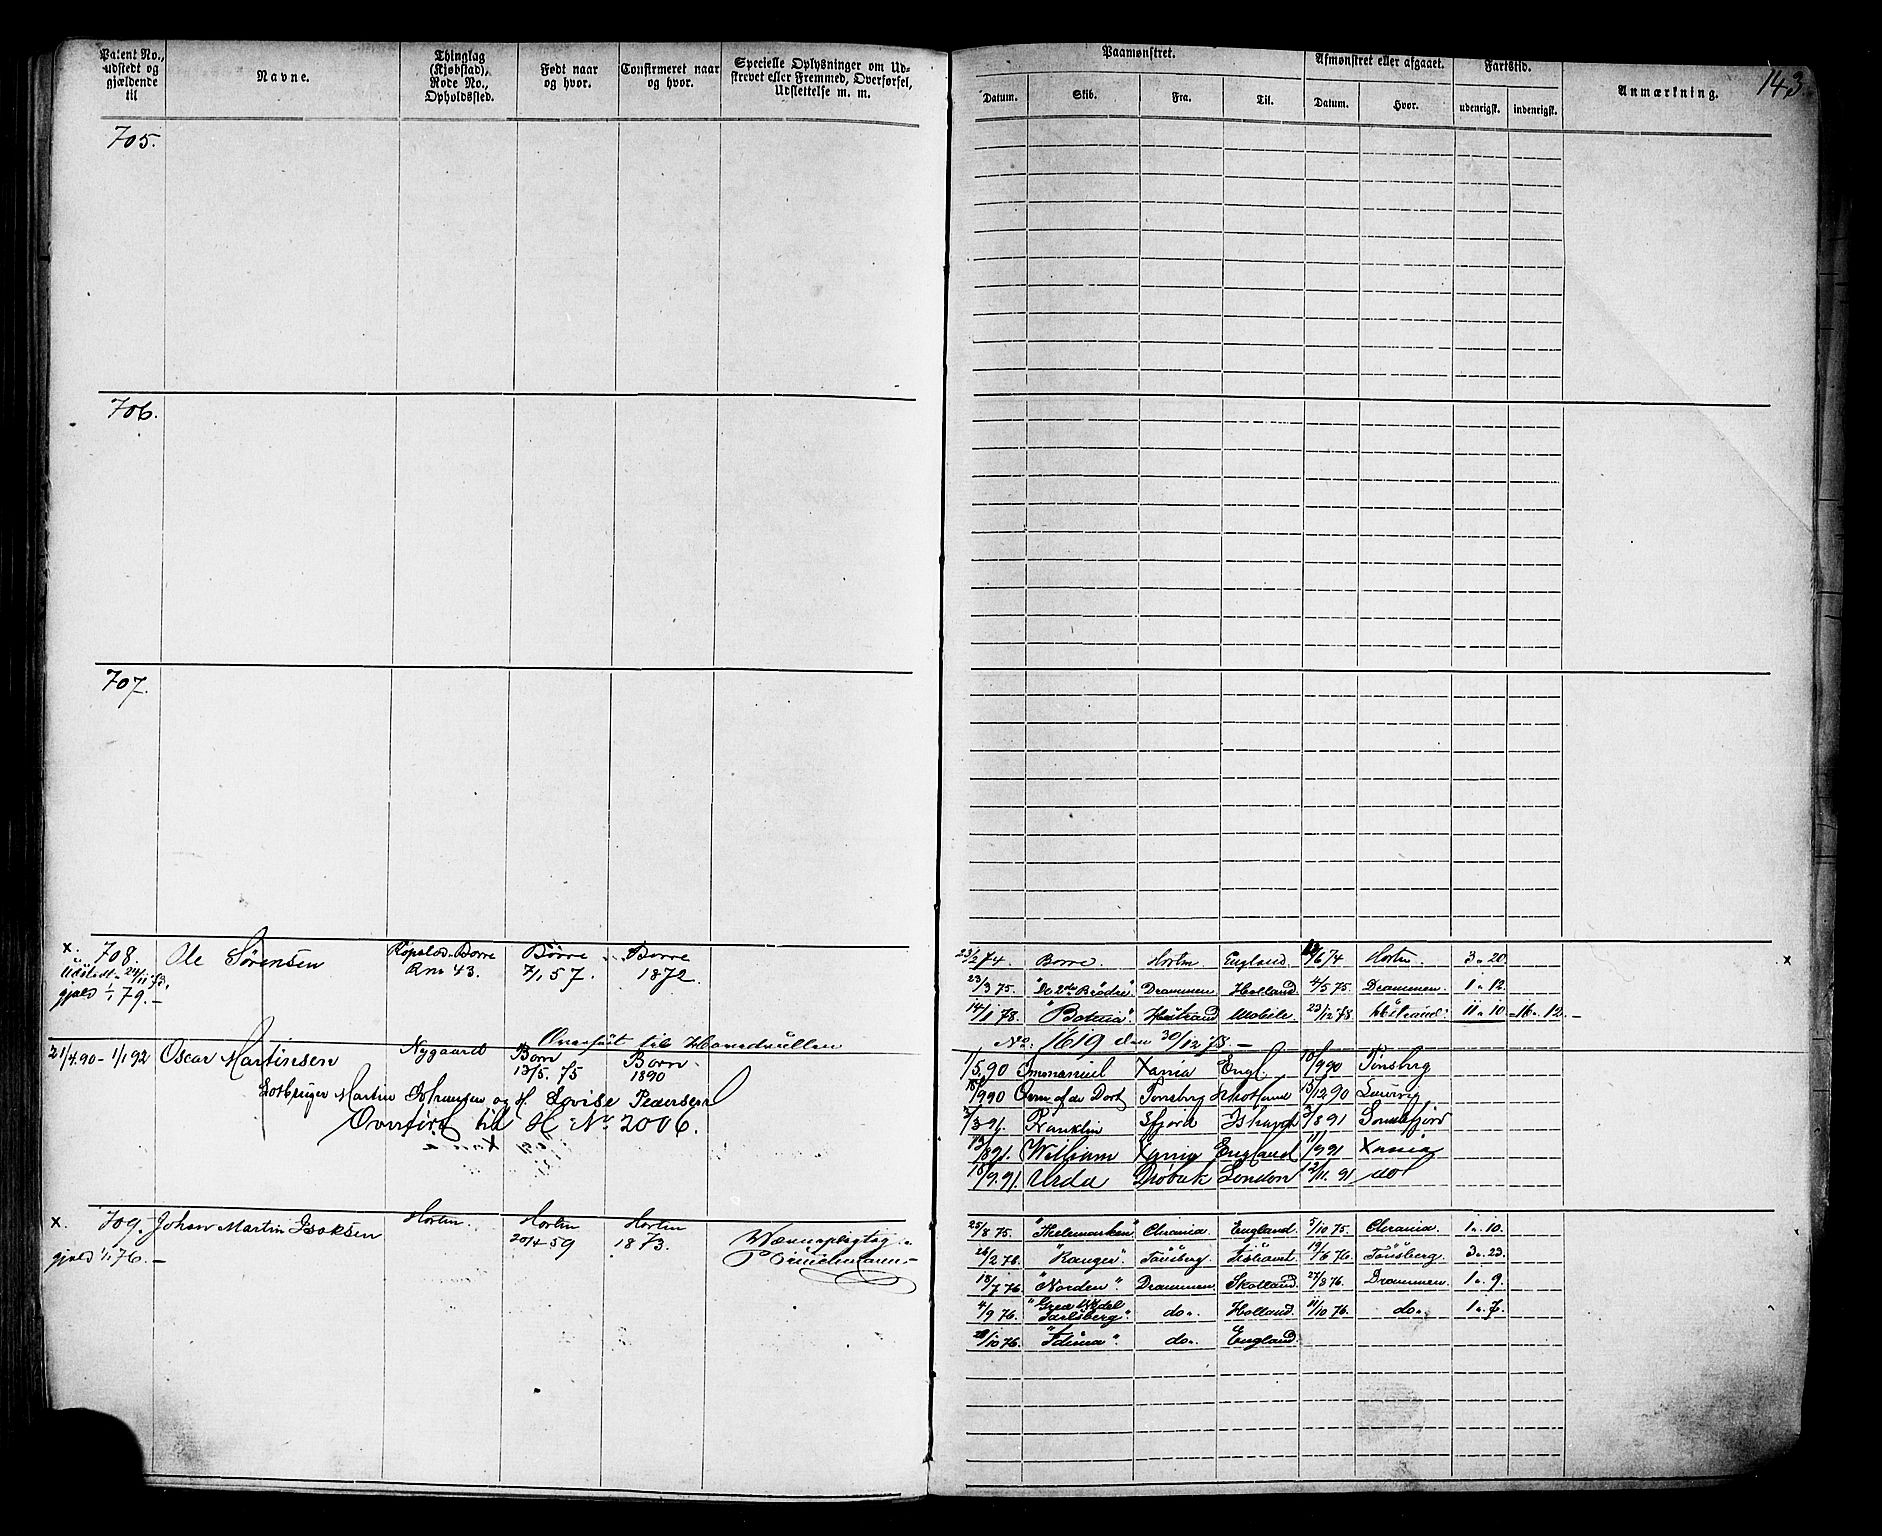 143.
Patent No., udstedt og gjældende til
Navne.
Thinglag (Kjøbstad), Rode No., Opholdssted.
Født naar og hvor.
Confirmeret naar og hvor.
Specielle Oplysninger om Udskrevet eller Fremmed, Overførsel, Udslettelse m. m.
Paamønstret.
Afmønstret eller afgaaet.
Fartstid.
Anmærkning.
Datum. Skib. Fra. Til. Datum. Hvor. udenrigsk. indenrigsk.
705.
706.
707.
x. 708. Ole Sørensen Borre Borre Borre
Rno 43. 7/1 57. 1872.
gjæld 1/1 79.-
23/2 74. Borre. Horten England Horten 3 " 20 x
23/3 75. "De 2de Brødre". Drammen Holland 4/5 75 Drammen. 1 " 12.
14/1 78. Mobile 23/12 78 11 " 10 16 " 12. -
Overført til Hovedrullen
No: 1619 den 30/12 78 -
21/4.90 - 1/1 92 Oscar Martinsen Nygaard Borre 13/5. 75 Borre 1890
Martin Johansen og H. Lovise Pedersen
Overført til H No 2006.
1/5.90 Emmanuel Xania Engl. 10/9 90 Tønsberg
18/9 90 Tønsberg 13/12 90 Laurvig
Franklin Sfjord 3/8 91 Sandefjord
13/8 91. William Xania England 11/9 91 Xania
18/9.91. Urda Drøbak London 12/11. 91 do
x. 709. Johan Martin Isaksen Horten. Horten 20/4 59 Horten 1873.
gjæld 1/1 76.-
Værnepligtig
25/8 75. "Thelemarken" Chrania. England 5/10 75. Chrania. 1 " 10.
26/2 76. "Ranger". Tønsberg 19/6 76. Tønsberg. 3 " 23.
18/7 76 "Norden". Drammen Skotland 27/8 76. Drammen 1 " 9.
4/9 76. "Greve Wedel Jarlsberg". do. Holland. 11/10 76. do. 1 " 7.
28/10 76. do. England.